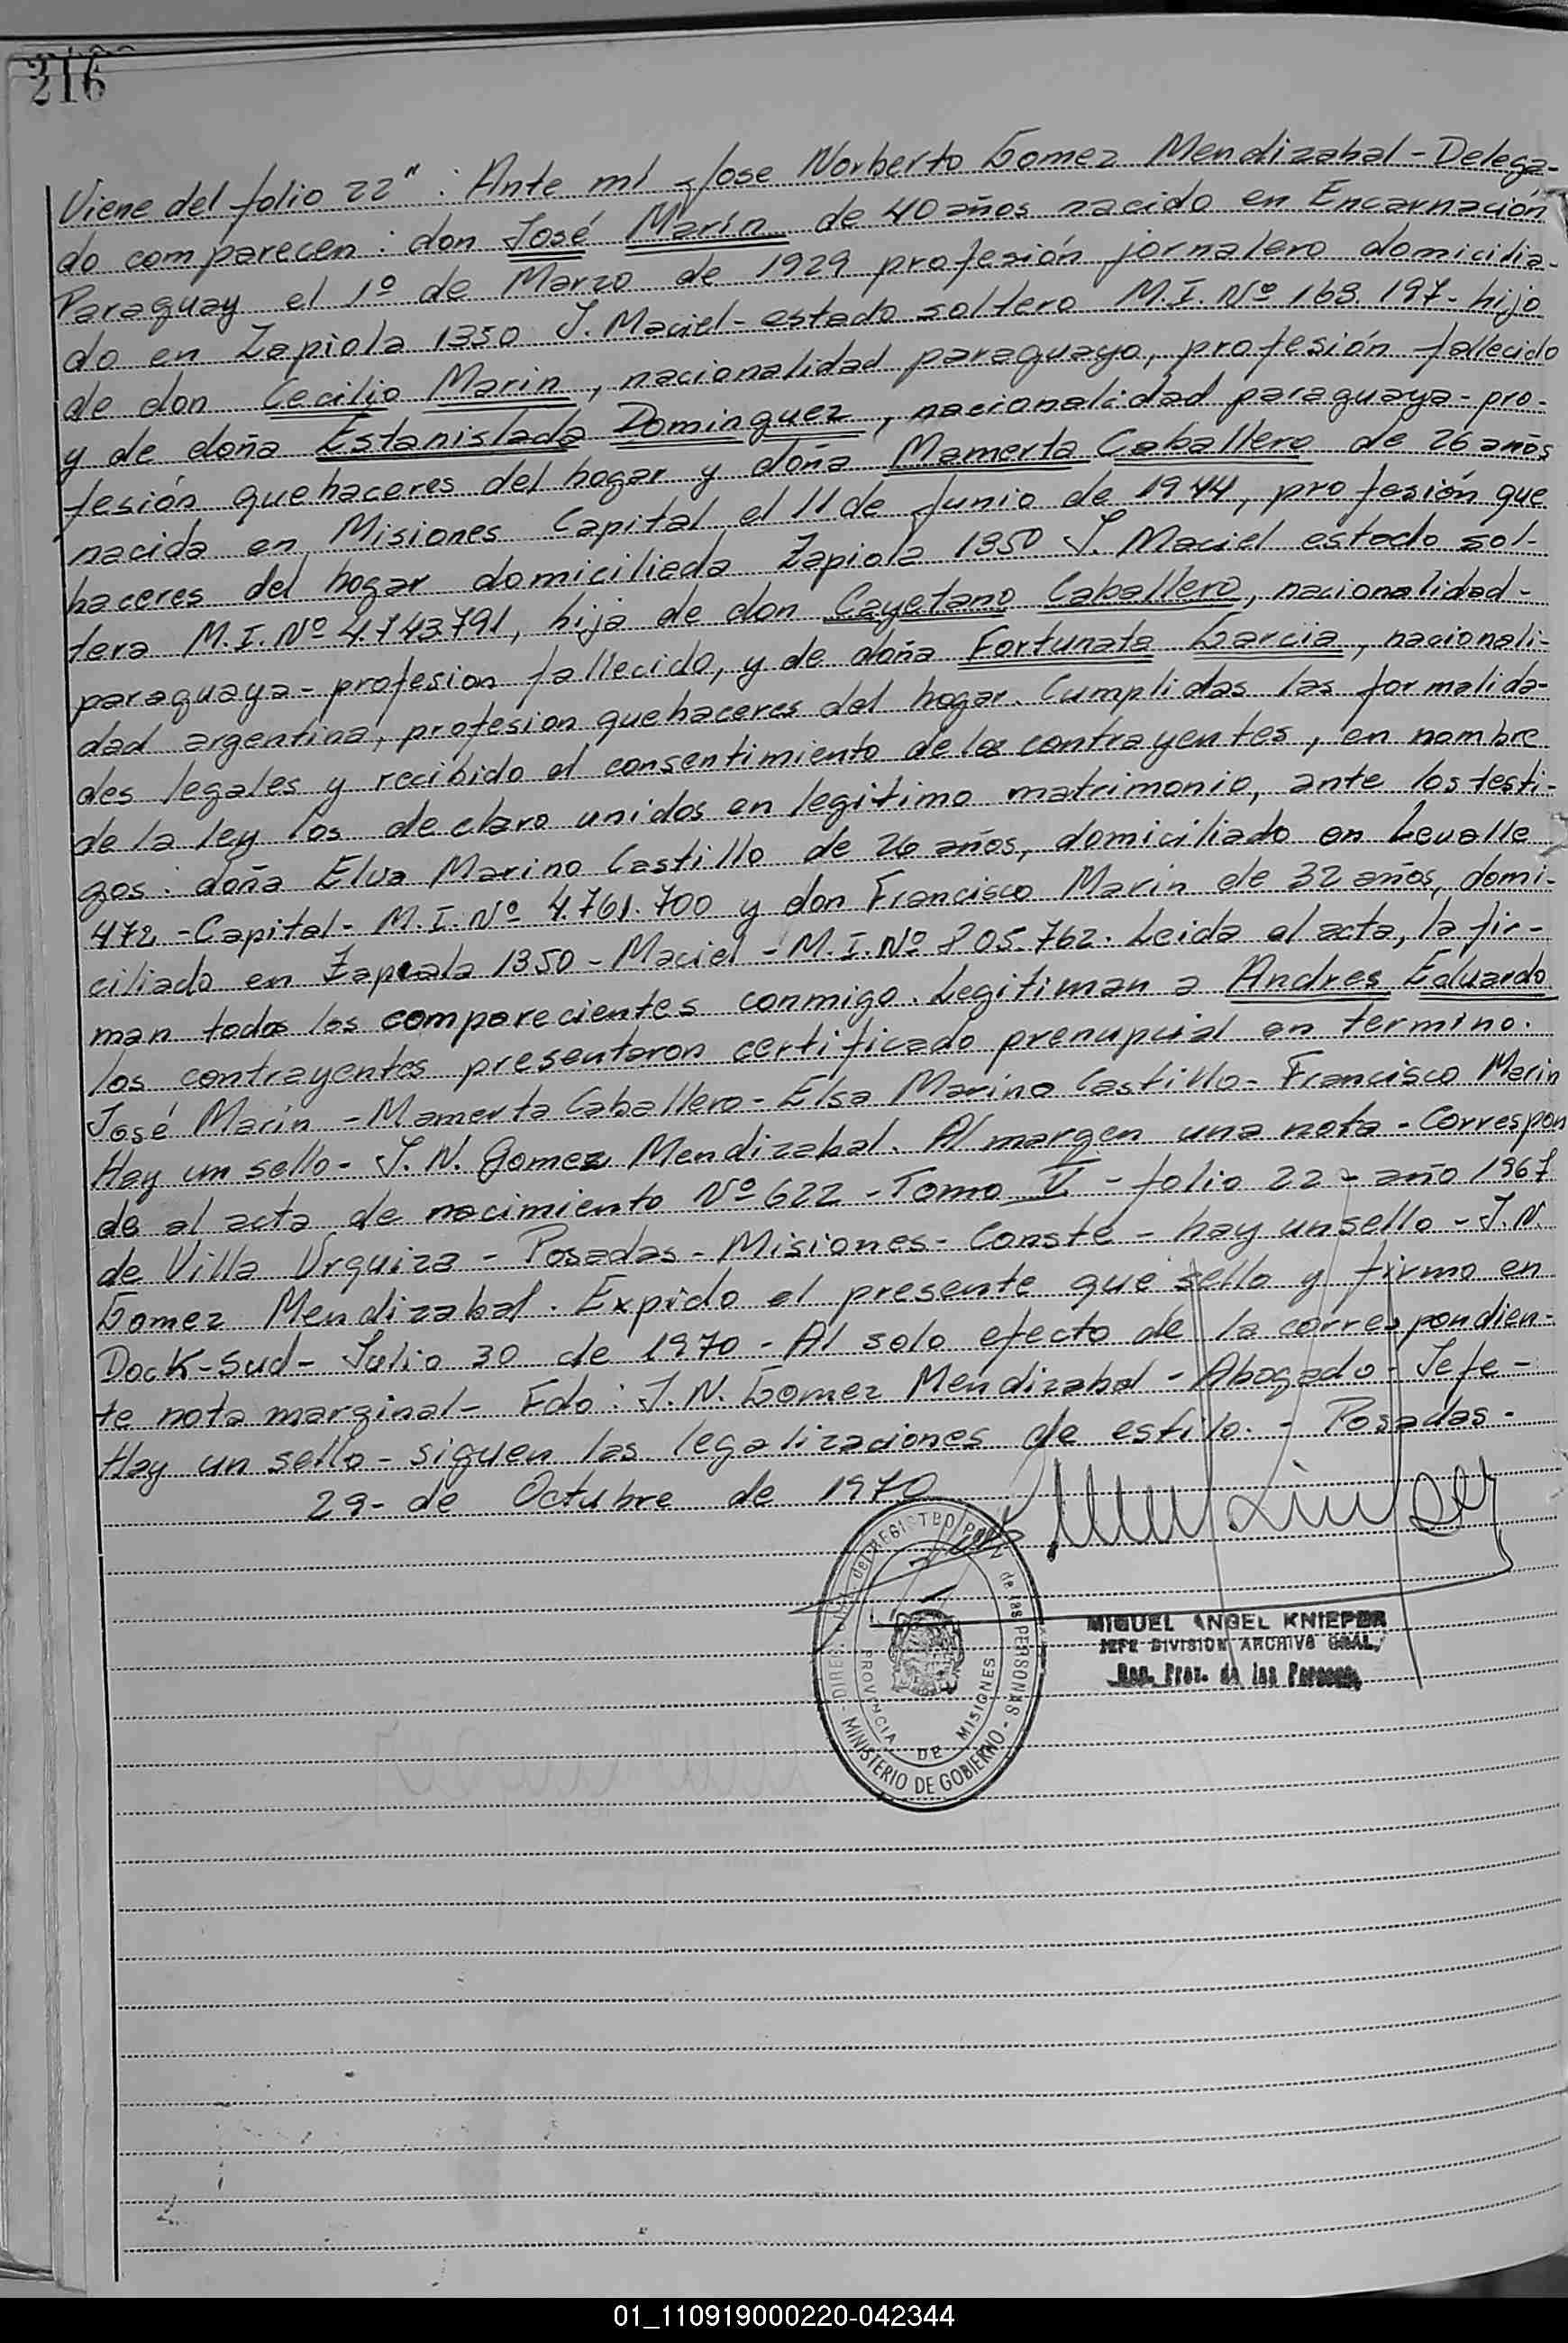 216
Viene del folio 22" : Ante mi Jose Norberto Gomez Mendizabal - Delega-
do comparecen : don José Marín de 40 años nacido en Encarnación
Paraguay el 1º de Marzo de 1929 profesión jornalero domicilia-
do en Zapiola 1350 I. Maciel - estado soltero M.I. Nº 168.197 - hijo
de don Cecilio Marin, nacionalidad paraguaya, profesión fallecido
y de doña Estanislada Dominguez, nacionalidad paraguaya - pro-
fesión quehaceres del hogar y doña Mamerta Caballero de 26 años
nacida en Misiones Capital el 11 de Junio de 1944, profesión que
haceres del hogar domiciliada Zapiola 1350 I. Maciel estado sol-
tera M.I. Nº 4.743.791, hija de don Cayetano Caballero, nacionalidad -
paraguaya - profesion fallecido, y de doña Fortunata Garcia, nacionali-
dad argentina, profesion quehaceres del hogar. Cumplidas las formalida-
des legales y recibido el consentimiento de los contrayentes, en nombre
de la ley los declaro unidos en legitimo matrimonio, ante los testi-
gos : doña Elva Marino Castillo de 26 años, domiciliado en Levalle
472 - Capital - M.I. Nº 4.761.700 y don Francisco Marin de 32 años, domi-
ciliado en Zapiala 1350 - Maciel - M.I. Nº 805.762. Leida el acta, la fir-
man todos los comparecientes conmigo. Legitiman a Andres Eduardo
los contrayentes presentaron certificado prenupcial en termino.
José Marín - Mamerta Caballero - Elsa Marino Castillo - Francisco Marin
Hay un sello - J. N. Gomez Mendizabal. Al margen una nota - Correspon
de al acta de nacimiento Nº 622 - Tomo V - folio 22 - año 1967
de Villa Urquiza - Posadas - Misiones - Conste - hay un sello - J. N.
Gomez Mendizabal. Expido el presente que sello y firmo en
Dock - Sud - Julio 30 de 1970 - Al solo efecto de la correspondien-
te nota marginal - Fdo : J. N. Gomez Mendizabal - Abogado - Jefe -
Hay un sello - siguen las legalizaciones de estilo. - Posadas -
29 - de Octubre de 1970
REGISTRO PROV. de las PERSONAS - MINISTERIO DE GOBIERNO
PROVINCIA DE MISIONES
MIGUEL ANGEL KNIEPER
JEFE DIVISION ARCHIVO GRAL.
Reg. Prov. de las Personas
01_110919000220-042344